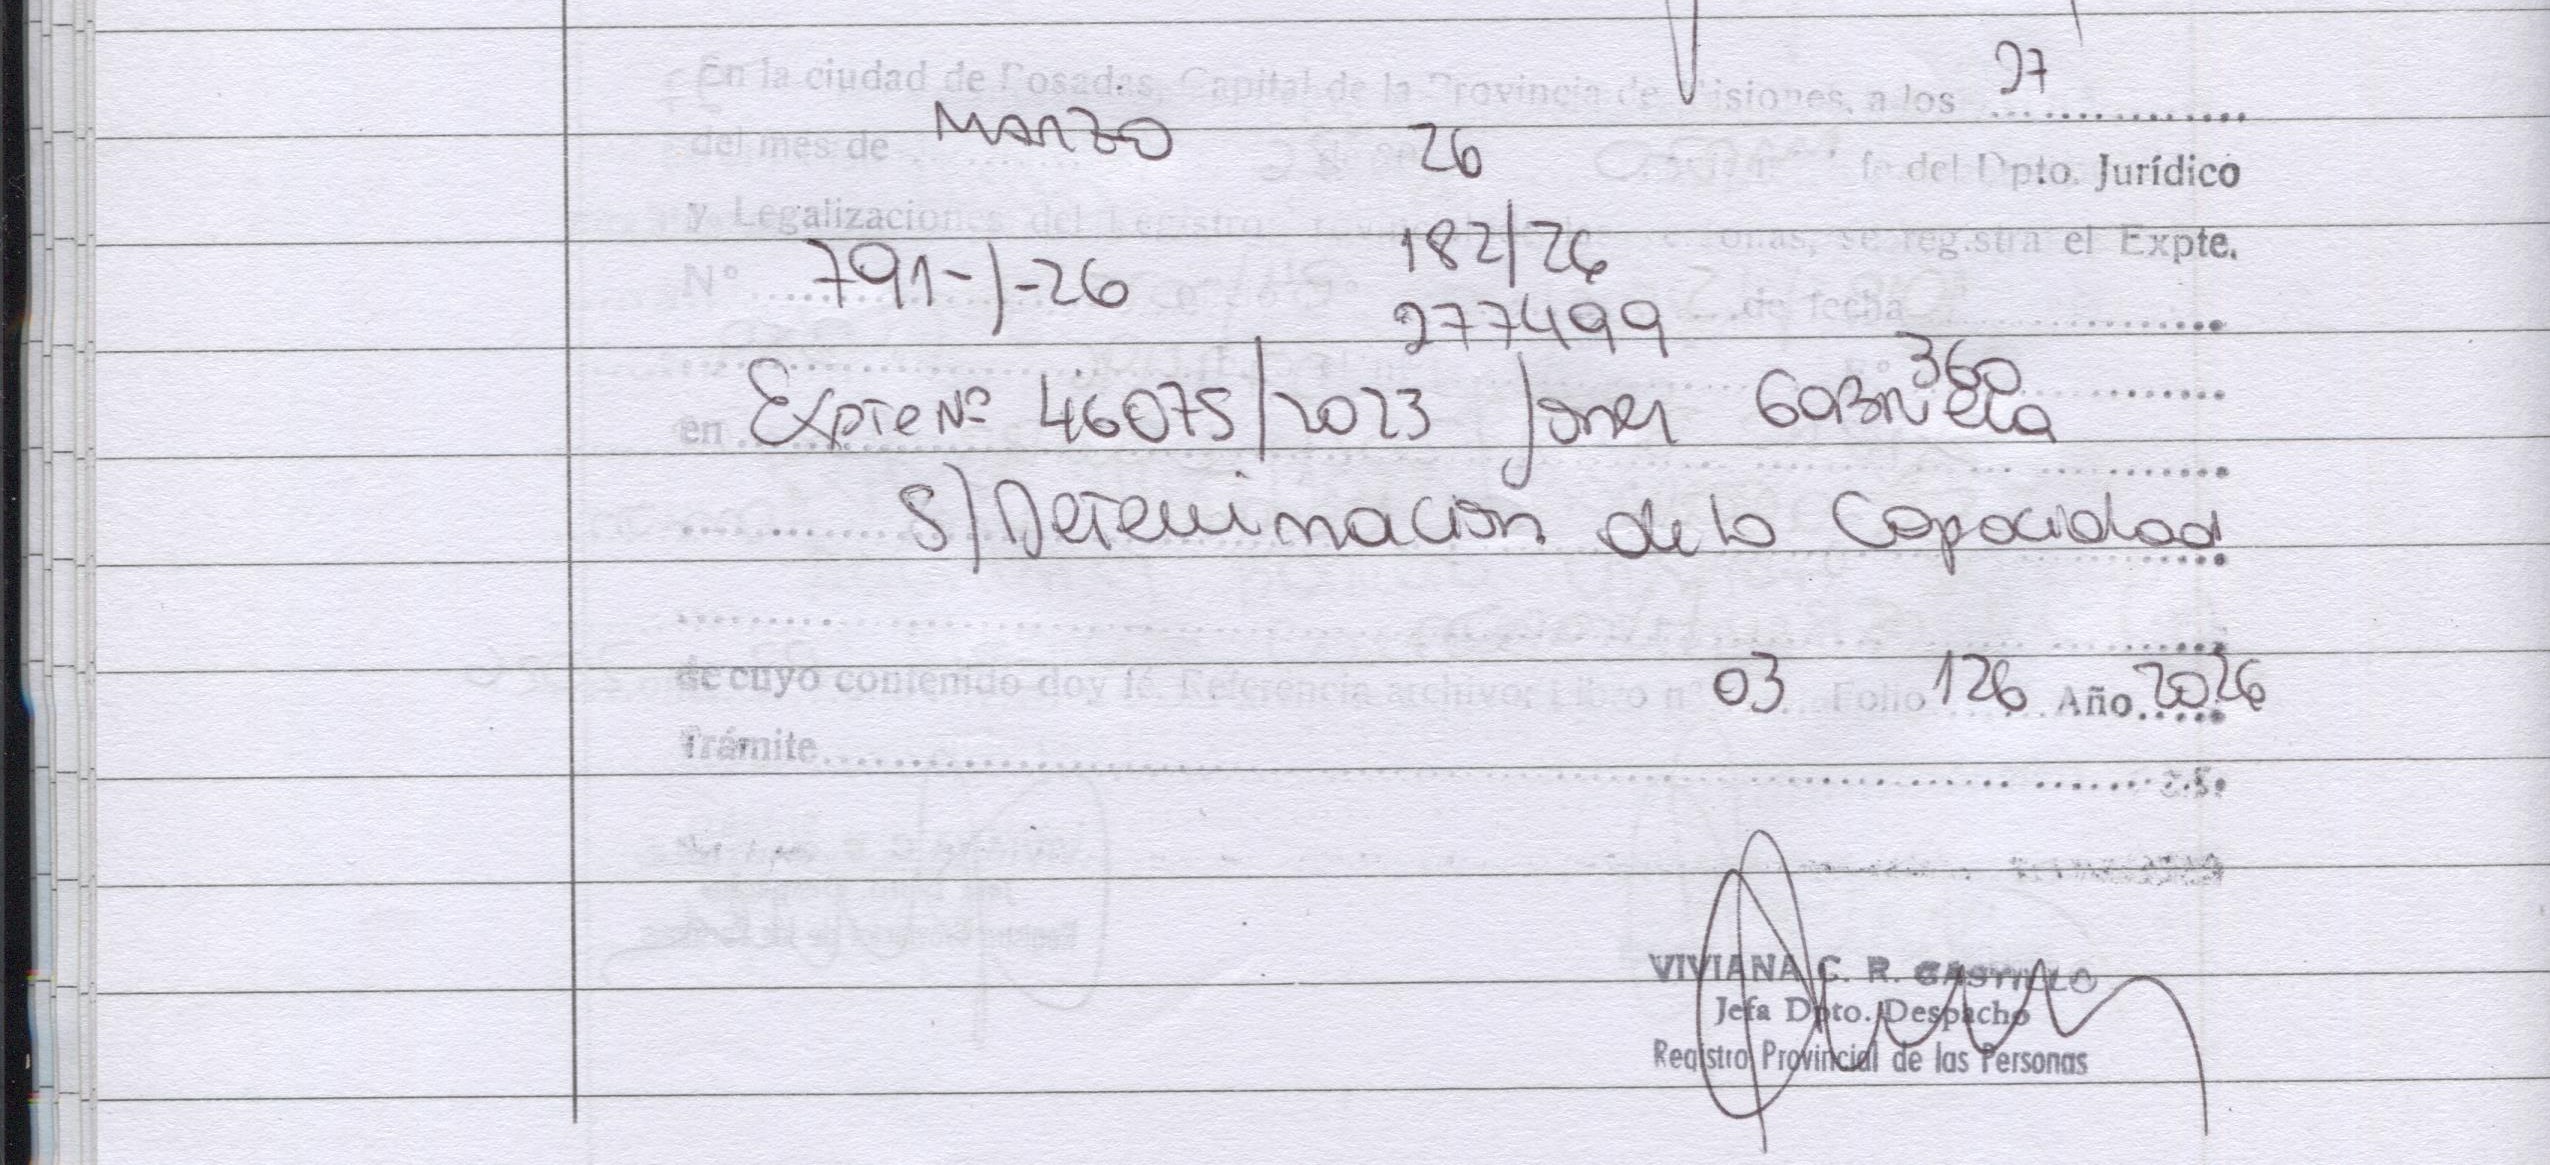 En la ciudad de Posadas, Capital de la Provincia de Misiones, a los 27
del mes de MARZO 26 Jefe del Dpto. Jurídico
y Legalizaciones del Registro Provincial de las Personas, se registra el Expte.
N° 791-J-26 182/26 de fecha
277499
360
en Expte Nº 46075/2023 Jones GABRIELA
S/ Determinacion de la Capacidad
de cuyo contenido doy fé. Referencia archivo: Libro nº 03 Folio 126 Año 2026
Trámite
VIVIANA C. R. CASTILLO
Jefa Dpto. Despacho
Registro Provincial de las Personas